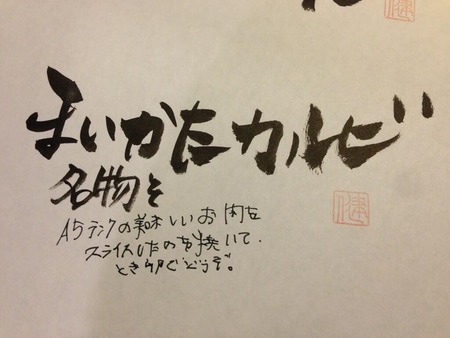 まいかたカルビ
名物
A5ランクの美味しいお肉を
スライスしたのを焼いて、
とき卵でどうぞ。
健
健